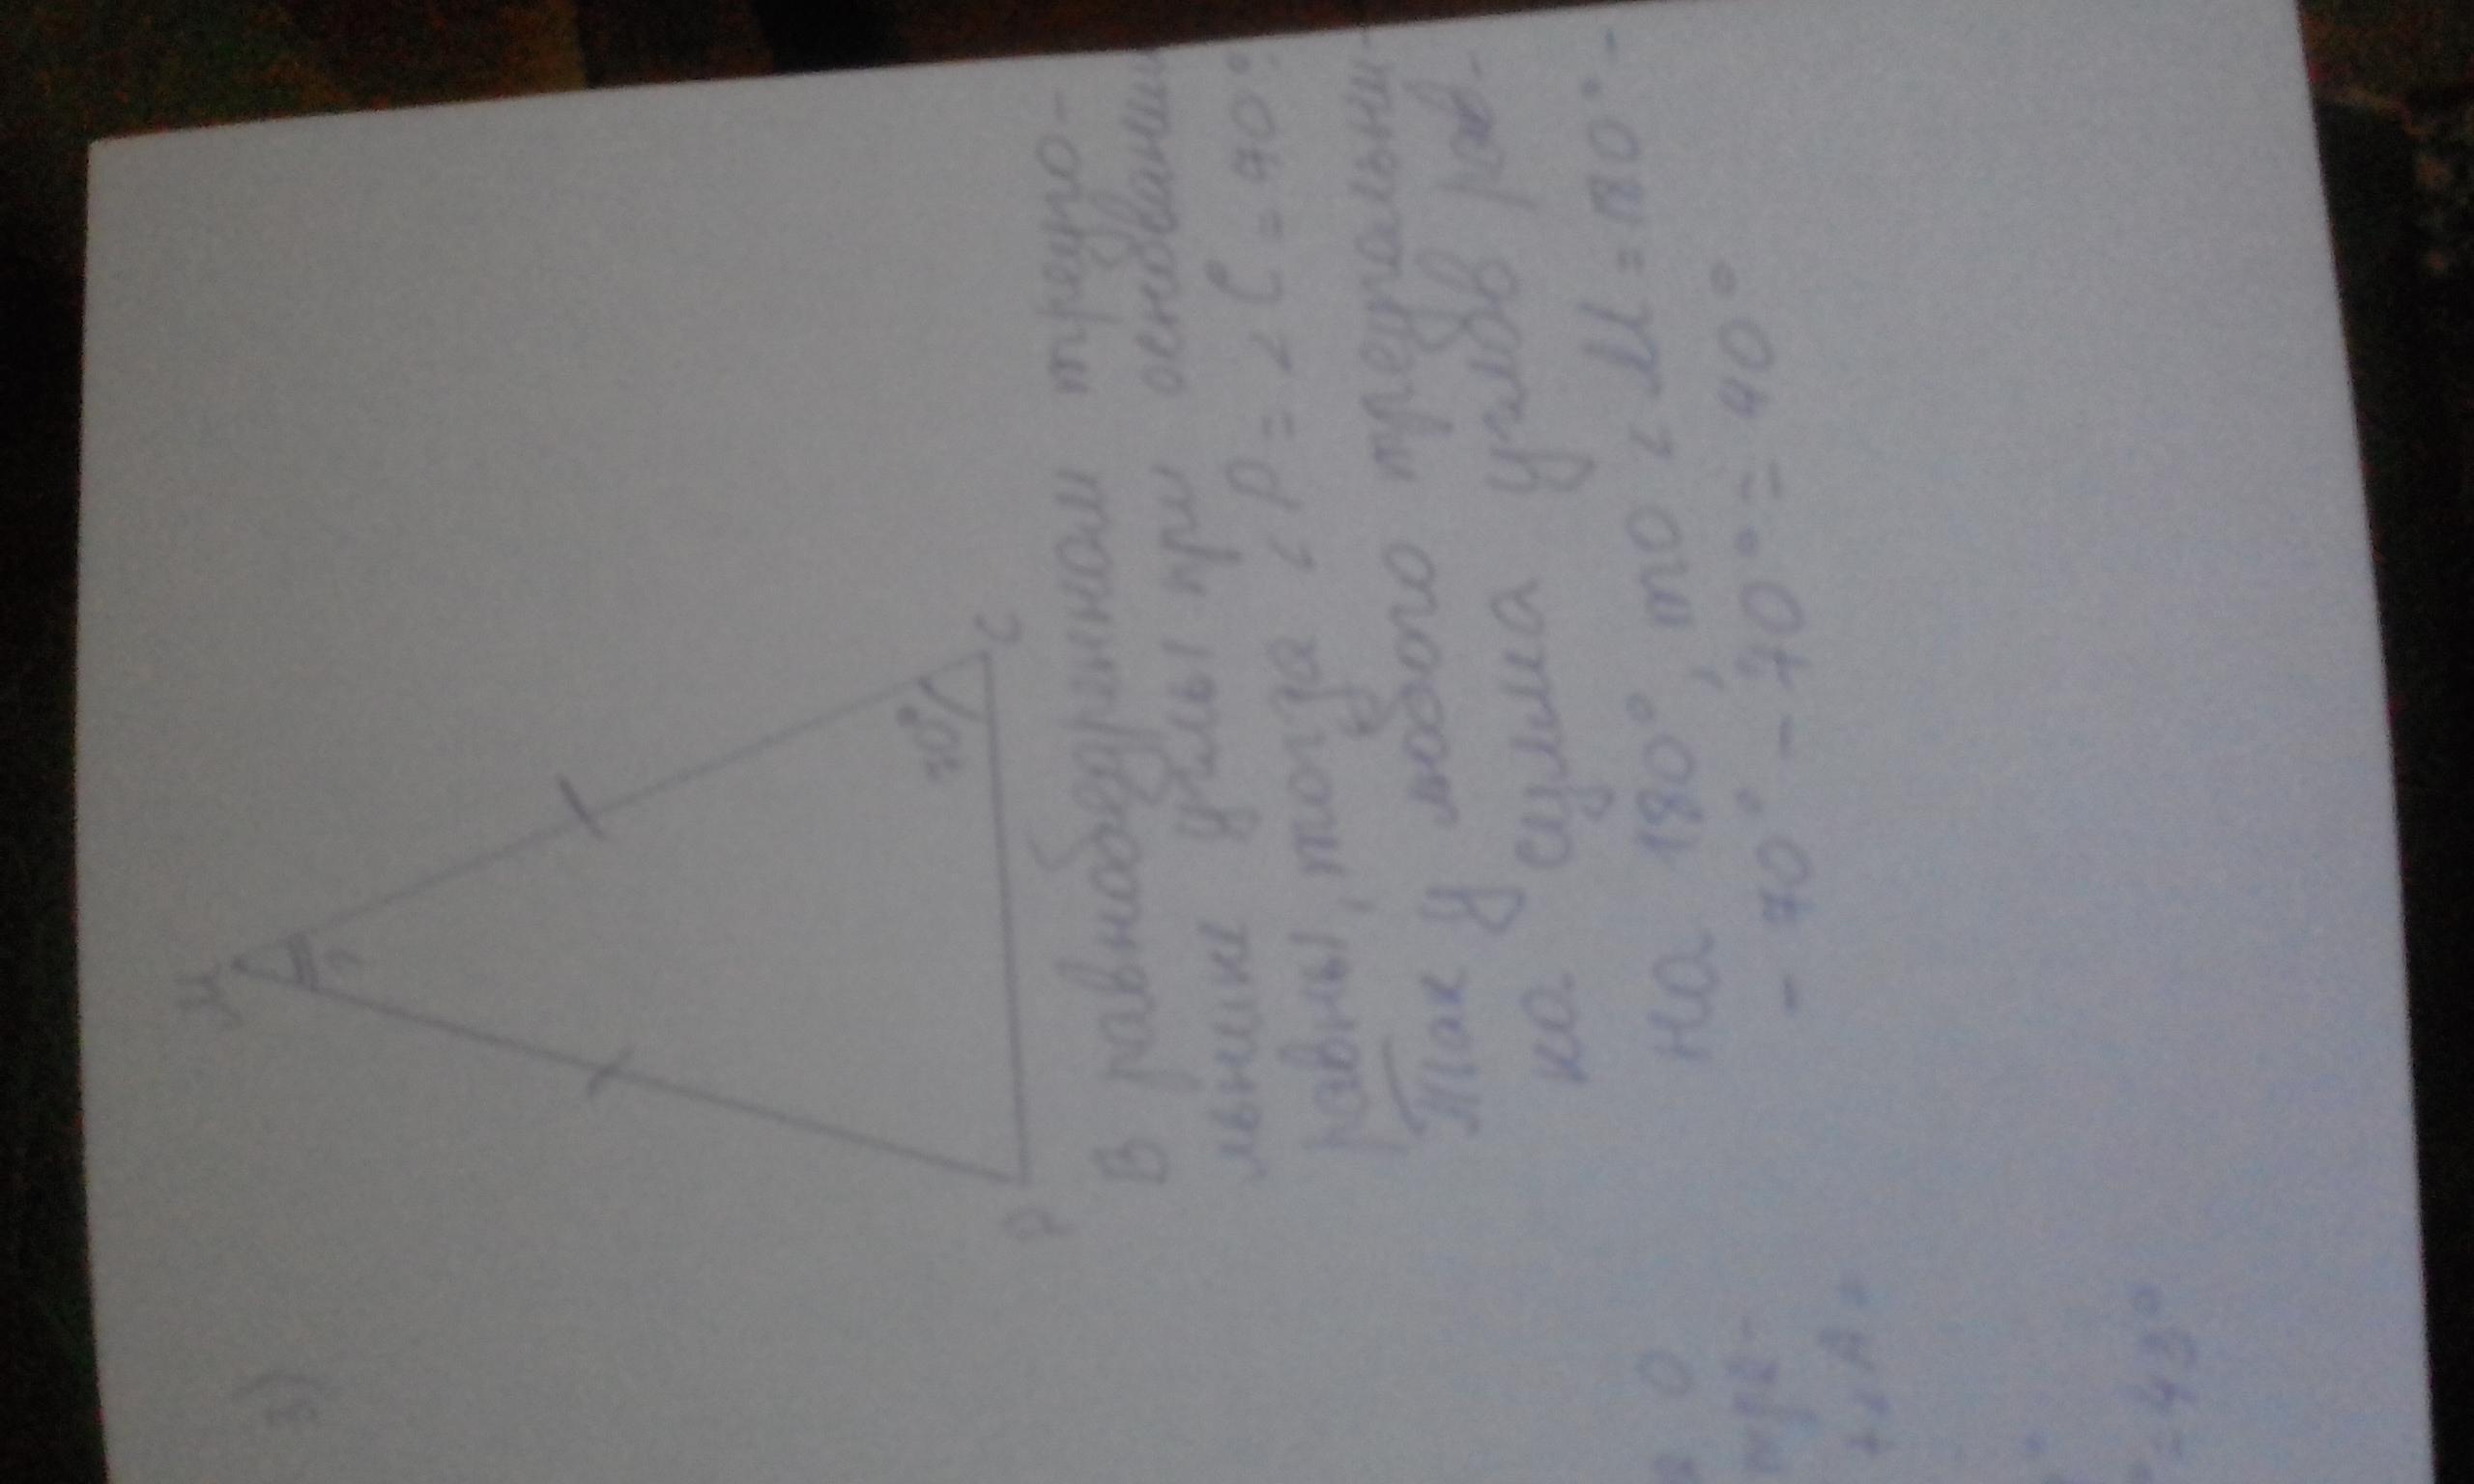 3)
М
?
70°
Р
С
В равнобедренном треуго-
льнике углы при основании
равны, тогда ∠Р = ∠С = 70°.
Так у любого треугольни-
ка сумма углов рав-
на 180°, то ∠М = 180° -
- 70° - 70° = 40°
о
= 43°